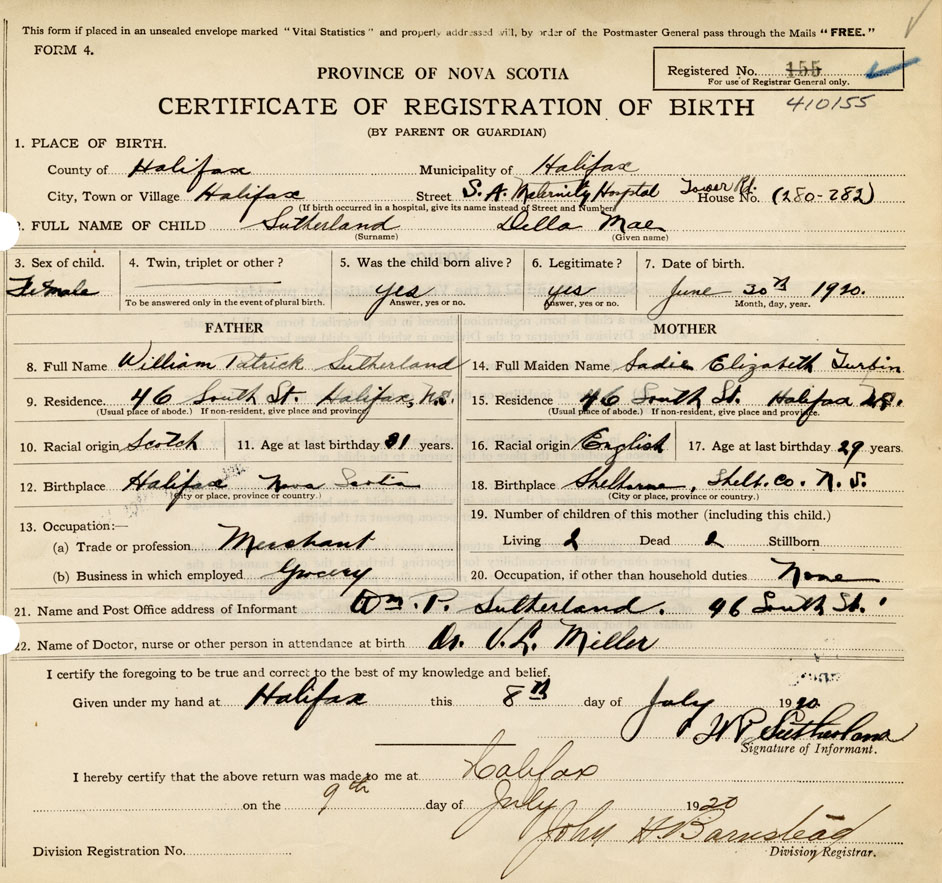 This form if placed in an unsealed envelope marked "Vital Statistics" and properly addressed will, by order of the Postmaster General pass through the Mails "FREE."
FORM 4.
PROVINCE OF NOVA SCOTIA
Registered No. 155
For use of Registrar General only.
CERTIFICATE OF REGISTRATION OF BIRTH 410155
(BY PARENT OR GUARDIAN)
1. PLACE OF BIRTH.
County of Halifax Municipality of Halifax
City, Town or Village Halifax Street S. A. Maternity Hospital Tower Rd. House No. (280-282)
(If birth occurred in a hospital, give its name instead of Street and Number)
2. FULL NAME OF CHILD Sutherland Della Mae
(Surname) (Given name)
3. Sex of child. 4. Twin, triplet or other? 5. Was the child born alive? 6. Legitimate? 7. Date of birth.
Female yes yes June 30th 1920.
To be answered only in the event of plural birth. Answer, yes or no. Answer, yes or no. Month, day, year.
FATHER MOTHER
8. Full Name William Patrick Sutherland 14. Full Maiden Name Sadie Elizabeth
9. Residence. 46 South St. Halifax, N.S. 15. Residence 46 South St. Halifax N.S.
(Usual place of abode.) If non-resident, give place and province. (Usual place of abode.) If non-resident, give place and province.
10. Racial origin Scotch 11. Age at last birthday 31 years. 16. Racial origin English 17. Age at last birthday 29 years.
12. Birthplace Halifax Nova Scotia 18. Birthplace Shelburne, Shelb. Co. N. S.
(City or place, province or country.) (City or place, province or country.)
13. Occupation:— 19. Number of children of this mother (including this child.)
(a) Trade or profession Merchant Living Dead Stillborn
(b) Business in which employed Grocery 20. Occupation, if other than household duties None
21. Name and Post Office address of Informant Wm. P. Sutherland. 46 South St.
22. Name of Doctor, nurse or other person in attendance at birth Dr. V. L. Miller
I certify the foregoing to be true and correct to the best of my knowledge and belief.
Given under my hand at Halifax this 8th day of July 1920
W P Sutherland
Signature of Informant.
I hereby certify that the above return was made to me at Halifax
on the 9th day of July 1920
John H Barnstead
Division Registration No. Division Registrar.